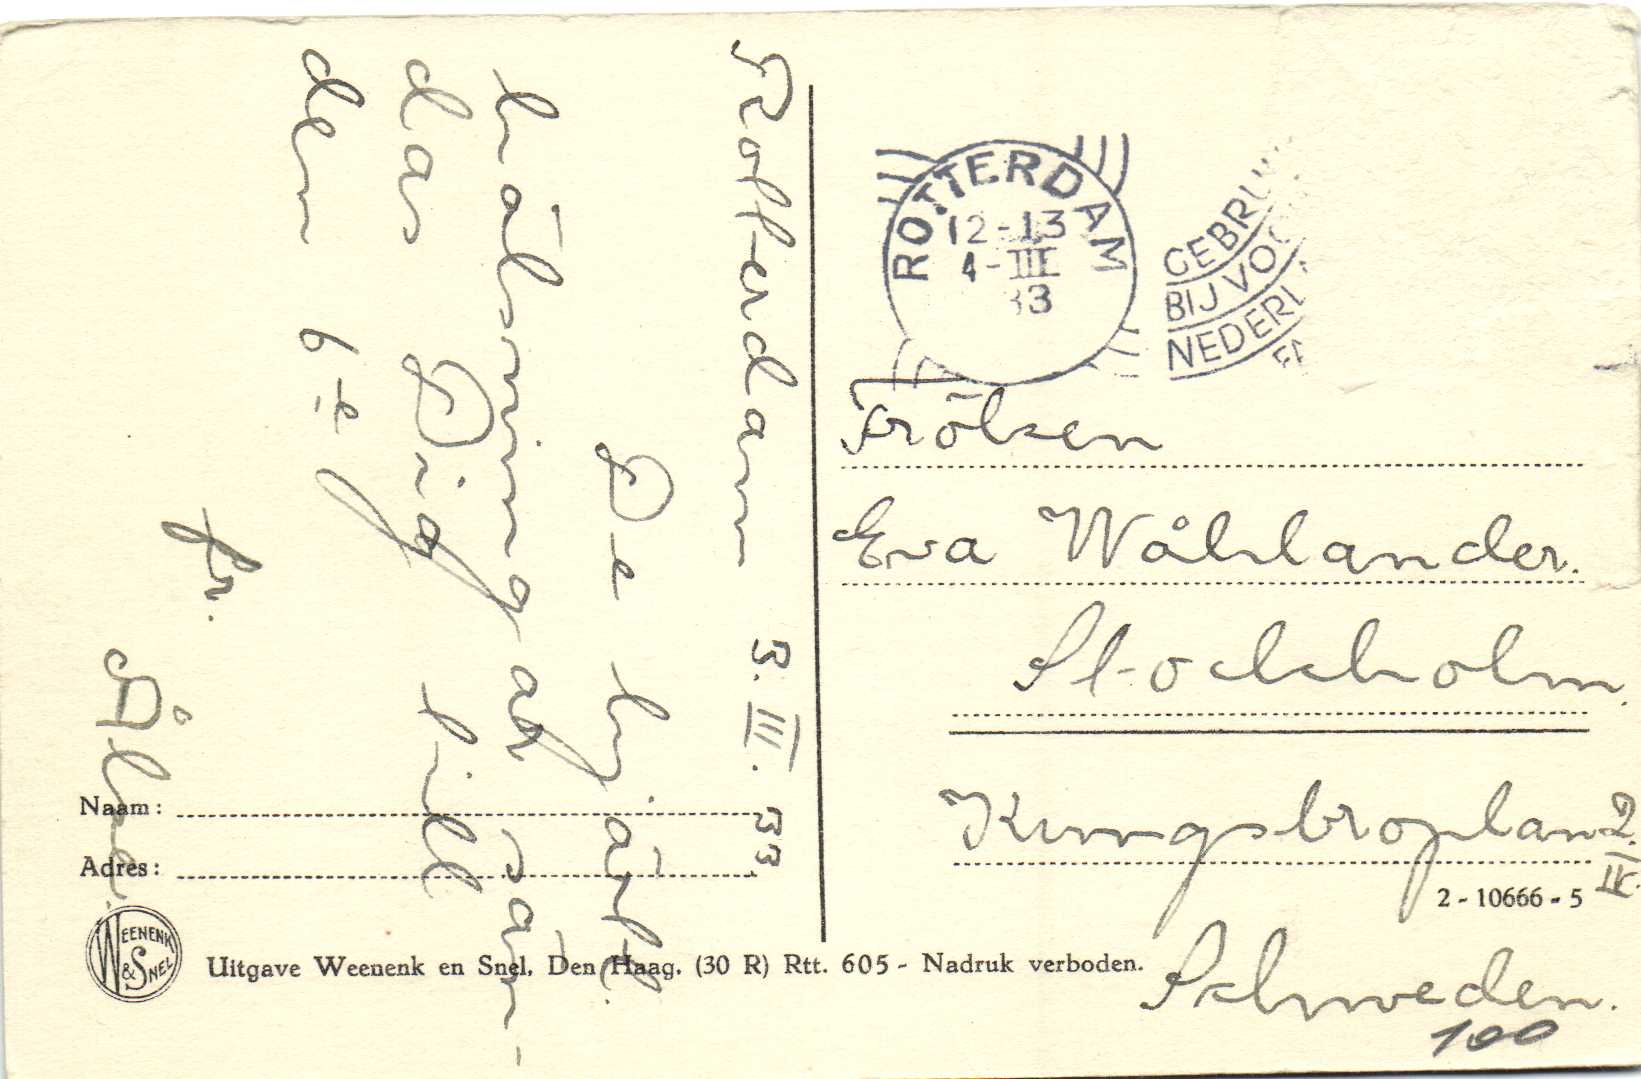 Rotterdam 3. III. 33
De hjärtl.
hälsningar sän-
das Dig till
den 6-e
fr.
Åke.
ROTTERDAM
12-13
4-III
33
GEBRU
BIJ VOO
NEDERL
Fröken
Eva Wåhlander.
Stockholm.
Kungsbroplan 2. IV.
Schweden.
100
Naam:
Adres:
2-10666-5
WEENENK & SNEL
Uitgave Weenenk en Snel, Den Haag. (30 R) Rtt. 605 - Nadruk verboden.